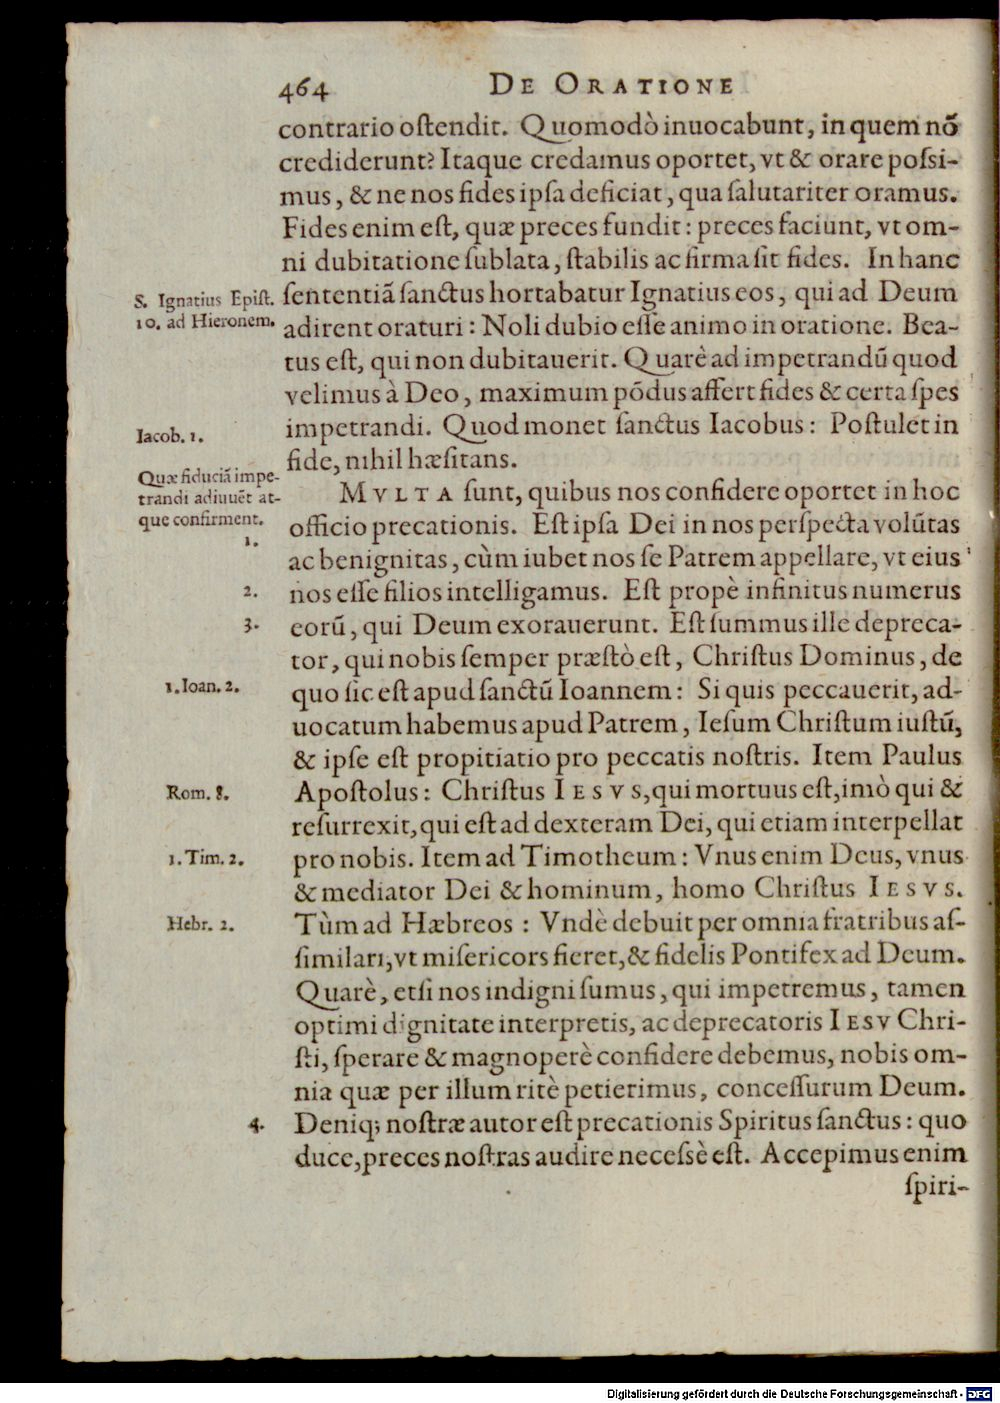 464 DE ORATIONE
contrario ostendit. Quomodò inuocabunt, in quem nõ
crediderunt? Itaque credamus oportet, vt & orare possi-
mus, & ne nos fides ipsa deficiat, qua salutariter oramus.
Fides enim est, quæ preces fundit: preces faciunt, vt om-
ni dubitatione sublata, stabilis ac firma sit fides. In hanc
S. Ignatius Epist.
10. ad Hieronem.
sententiã sanctus hortabatur Ignatius eos, qui ad Deum
adirent oraturi: Noli dubio esse animo in oratione. Bea-
tus est, qui non dubitauerit. Quarè ad impetrandũ quod
velimus à Deo, maximum põdus affert fides & certa spes
Iacob. 1.
impetrandi. Quod monet sanctus Iacobus: Postulet in
fide, nihil hæsitans.
Quæ fiduciã impe-
trandi adiuuẽt at-
que confirment.
MVLTA sunt, quibus nos confidere oportet in hoc
officio precationis. Est ipsa Dei in nos perspecta volũtas
1.
ac benignitas, cùm iubet nos se Patrem appellare, vt eius
2.
nos esse filios intelligamus. Est propè infinitus numerus
3.
eorũ, qui Deum exorauerunt. Est summus ille depreca-
tor, qui nobis semper præstò est, Christus Dominus, de
1. Ioan. 2.
quo sic est apud sanctũ Ioannem: Si quis peccauerit, ad-
uocatum habemus apud Patrem, Iesum Christum iustũ,
& ipse est propitiatio pro peccatis nostris. Item Paulus
Rom. 8.
Apostolus: Christus IESVS, qui mortuus est, imò qui &
resurrexit, qui est ad dexteram Dei, qui etiam interpellat
1. Tim. 2.
pro nobis. Item ad Timotheum: Vnus enim Deus, vnus
& mediator Dei & hominum, homo Christus IESVS.
Hebr. 2.
Tùm ad Hæbreos: Vndè debuit per omnia fratribus as-
similari, vt misericors fieret, & fidelis Pontifex ad Deum.
Quarè, etsi nos indigni sumus, qui impetremus, tamen
optimi dignitate interpretis, ac deprecatoris IESV Chri-
sti, sperare & magnoperè confidere debemus, nobis om-
nia quæ per illum ritè petierimus, concessurum Deum.
4.
Deniq; nostræ autor est precationis Spiritus sanctus: quo
duce, preces nostras audire necessè est. Accepimus enim
spiri-
Digitalisierung gefördert durch die Deutsche Forschungsgemeinschaft - DFG